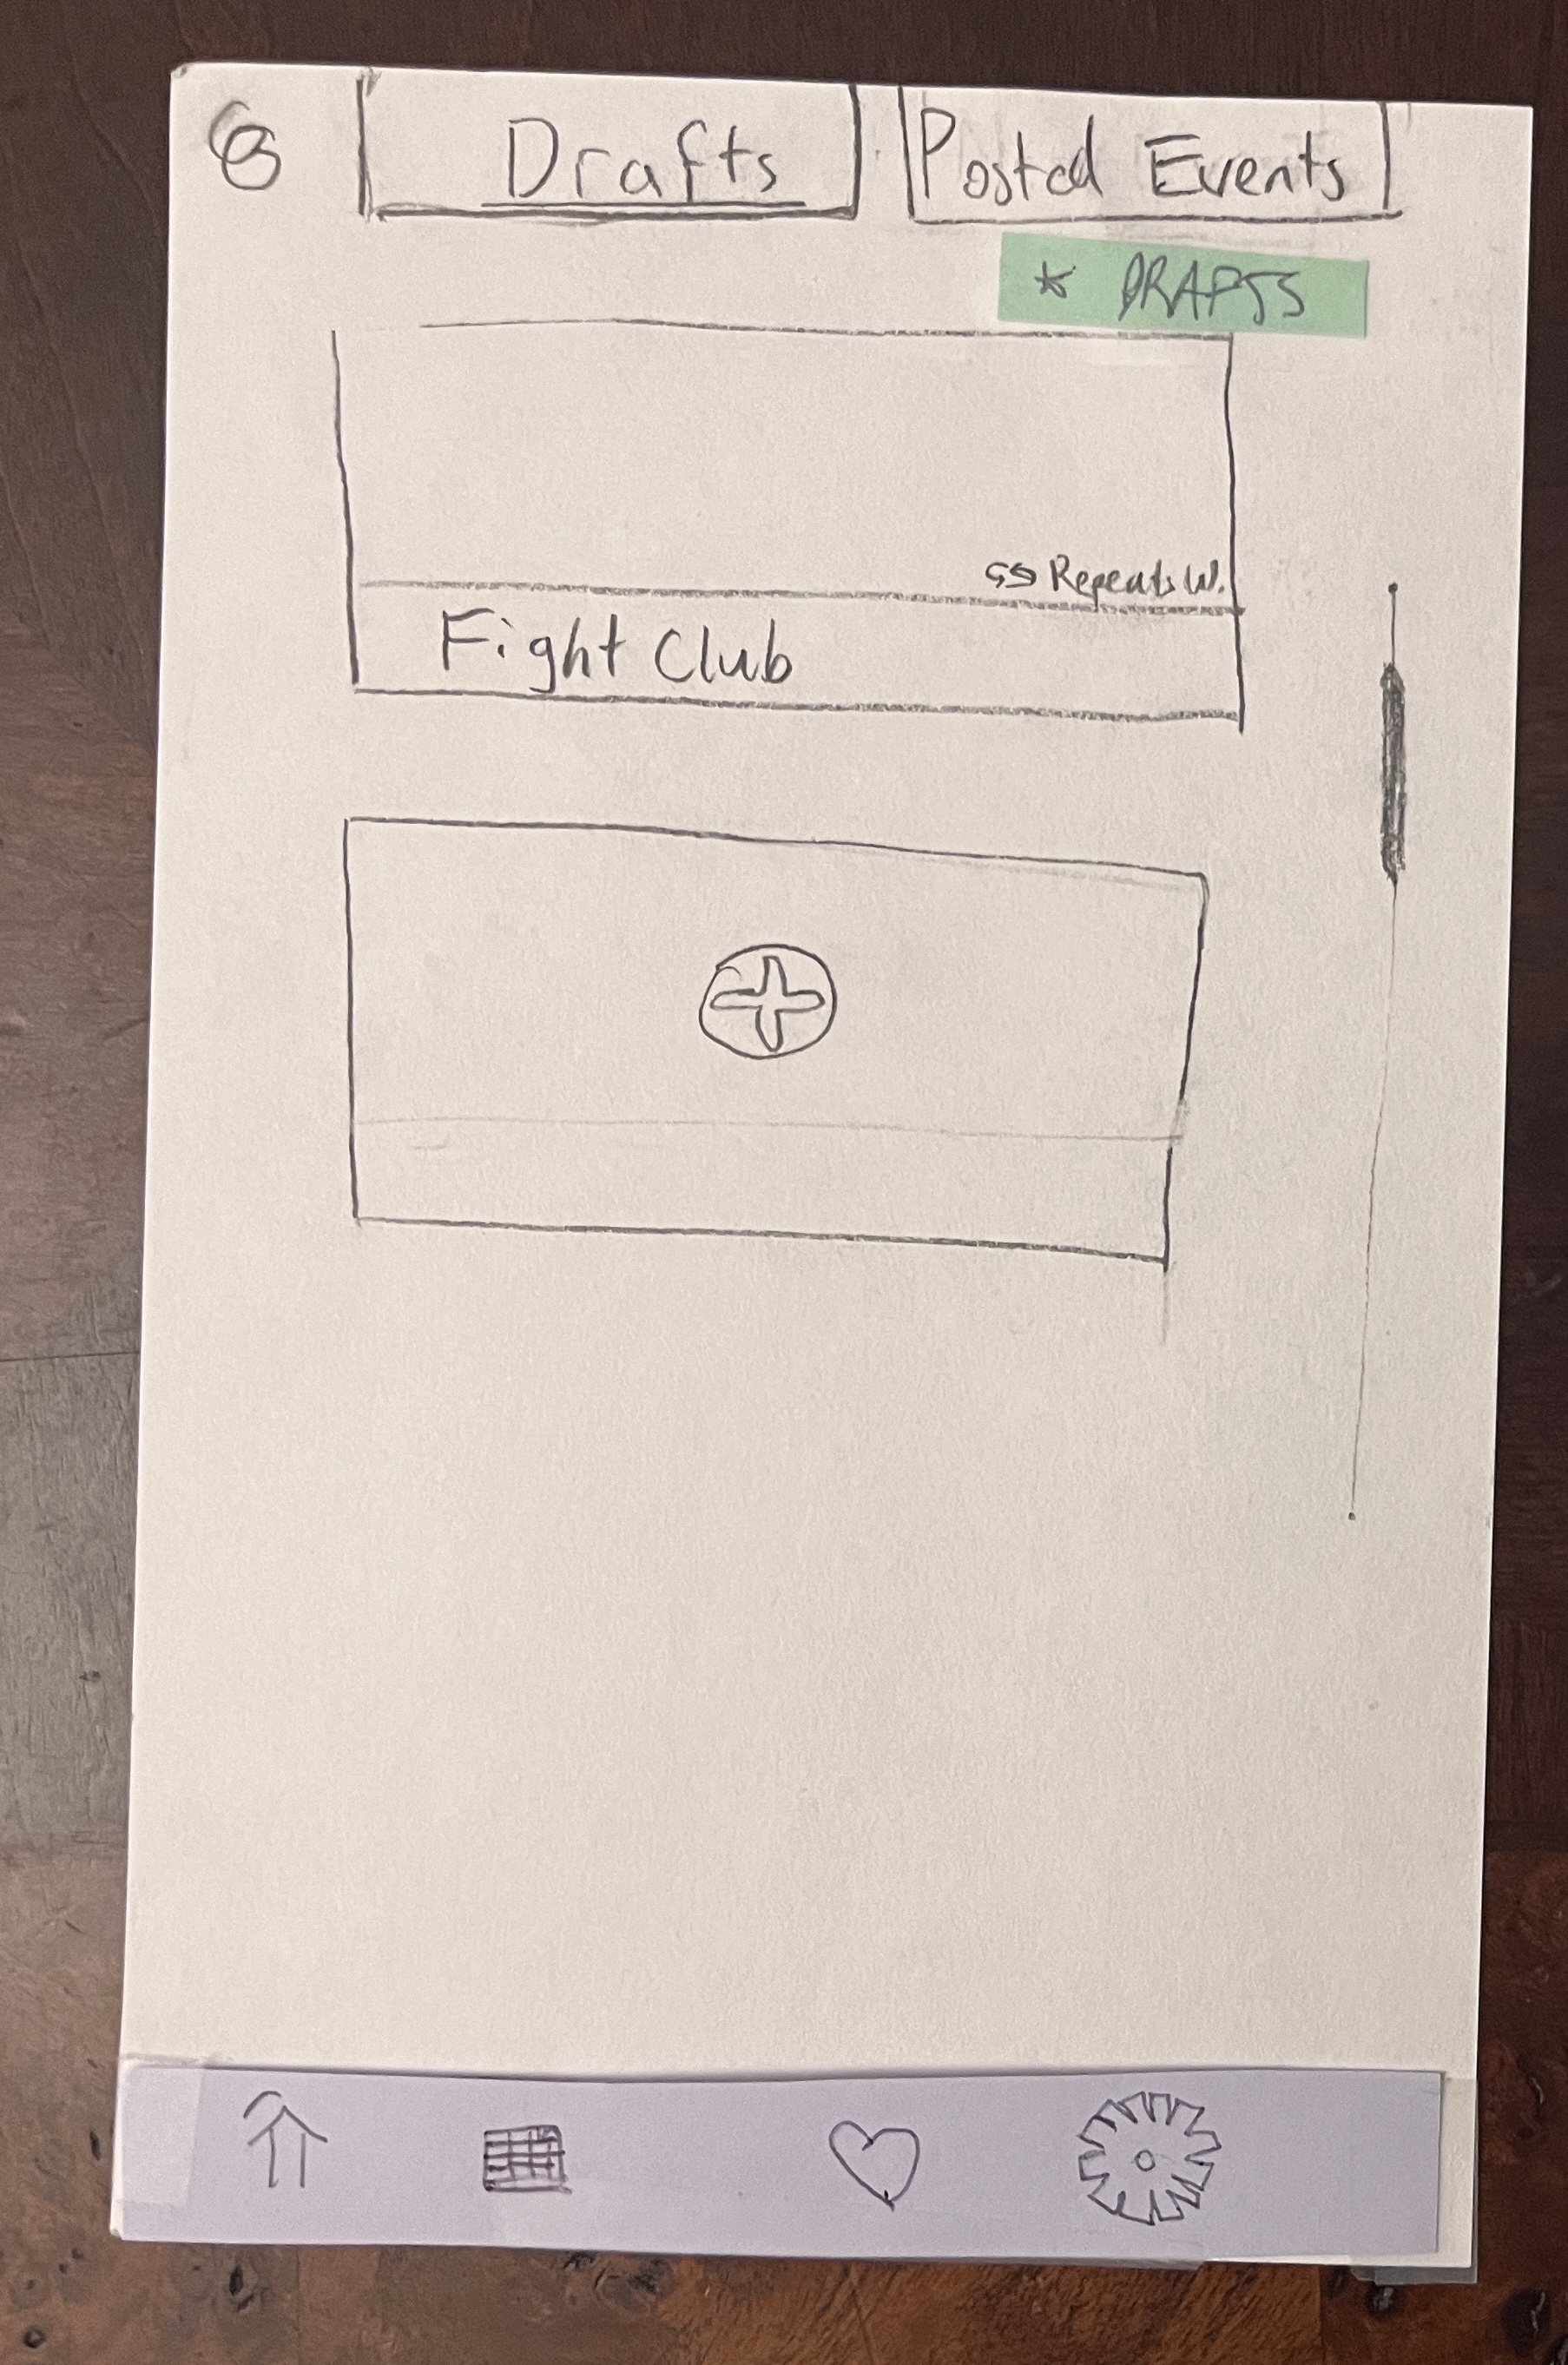 8 Drafts Posted Events
* DRAFTS
Repeats W.
Fight Club